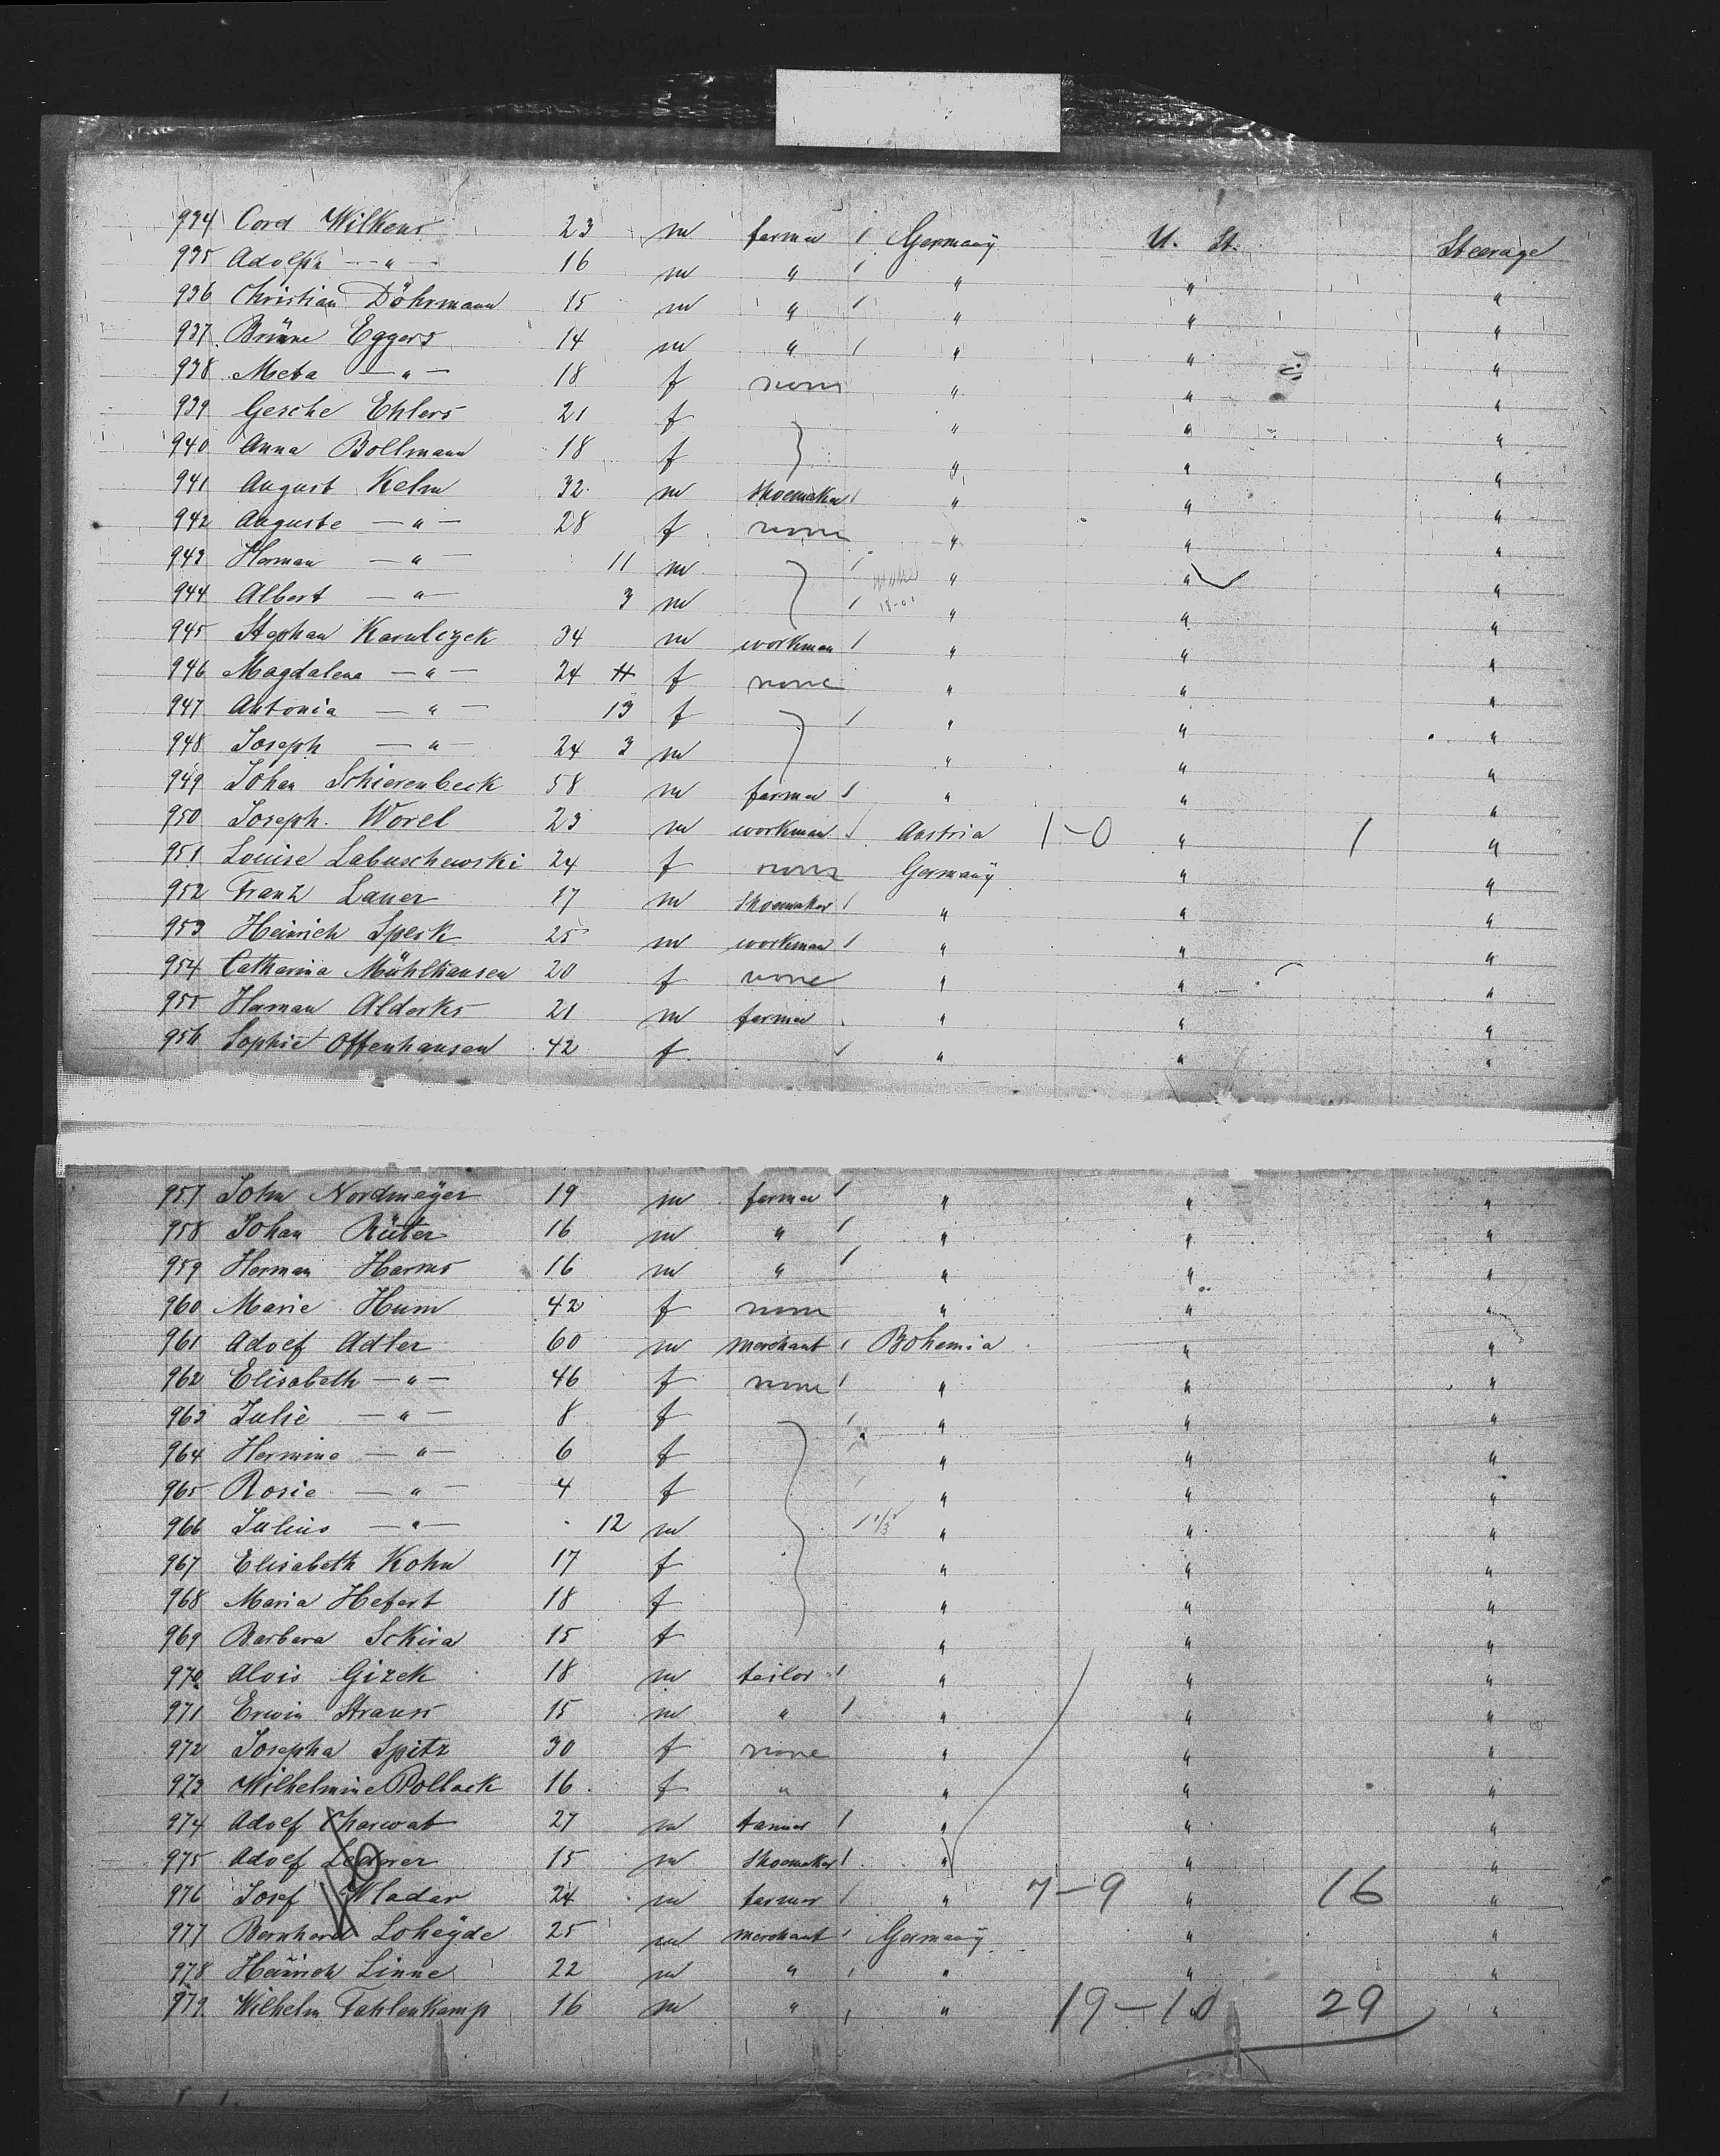 934 Cord Wilkens 23 m farmer / Germany U. St. Steerage
935 Adolph — " — 16 m " / " " "
936 Christian Döhrmann 15 m " / " " "
937 Brüne Eggers 14 m " / " " "
938 Meta — " — 18 f none " " "
939 Gesche Ehlers 21 f " " "
940 Anna Bollmann 18 f " " "
941 August Kelm 32 m shoemaker / " " "
942 Auguste — " — 28 f none " " "
943 Herman — " — 11 m / " " "
944 Albert — " — 3 m / " " "
945 Stephan Karulczek 34 m workman / " " "
946 Magdalena — " — 24 f none " " "
947 Antonia — " — 13 f / " " "
948 Joseph — " — 24 3 m " " "
949 Johan Schierenbeck 58 m farmer / " " "
950 Joseph Worel 23 m workman / Austria 1-0 " 1 "
951 Louise Labuschewski 24 f none Germany " "
952 Franz Lauer 17 m shoemaker / " " "
953 Heinrich Speck 25 m workman / " " "
954 Catharina Mühlhausen 20 f none " " "
955 Herman Alderks 21 m farmer " " "
956 Sophie Offenhausen 42 f / " " "
957 John Nordmeÿer 19 m farmer / " " "
958 Johan Rüter 16 m " / " " "
959 Herman Harms 16 m " / " " "
960 Marie Hum 42 f none " " "
961 Adolf Adler 60 m merchant / Bohemia " "
962 Elisabeth — " — 46 f none / " " "
963 Julie — " — 8 f / " " "
964 Hermine — " — 6 f " " "
965 Rosie — " — 4 f " " "
966 Julius — " — 12 m / " " "
967 Elisabeth Kohn 17 f " " "
968 Maria Hefert 18 f " " "
969 Barbara Sckira 15 f " " "
970 Alois Gizek 18 m tailor / " " "
971 Erwin Strauss 15 m " / " " "
972 Josepha Spitz 30 f none " " "
973 Wilhelmine Pollack 16 f " " " "
974 Adolf Charwat 27 m tanner / " " "
975 Adolf Lederer 15 m shoemaker / " " "
976 Josef Wladar 24 m farmer / " 7-9 " 16 "
977 Bernhard Loheÿde 25 m merchant / Germany " "
978 Heinrich Linne 22 m " / " " "
979 Wilhelm Fahlenkamp 16 m " / " 19-10 29 "